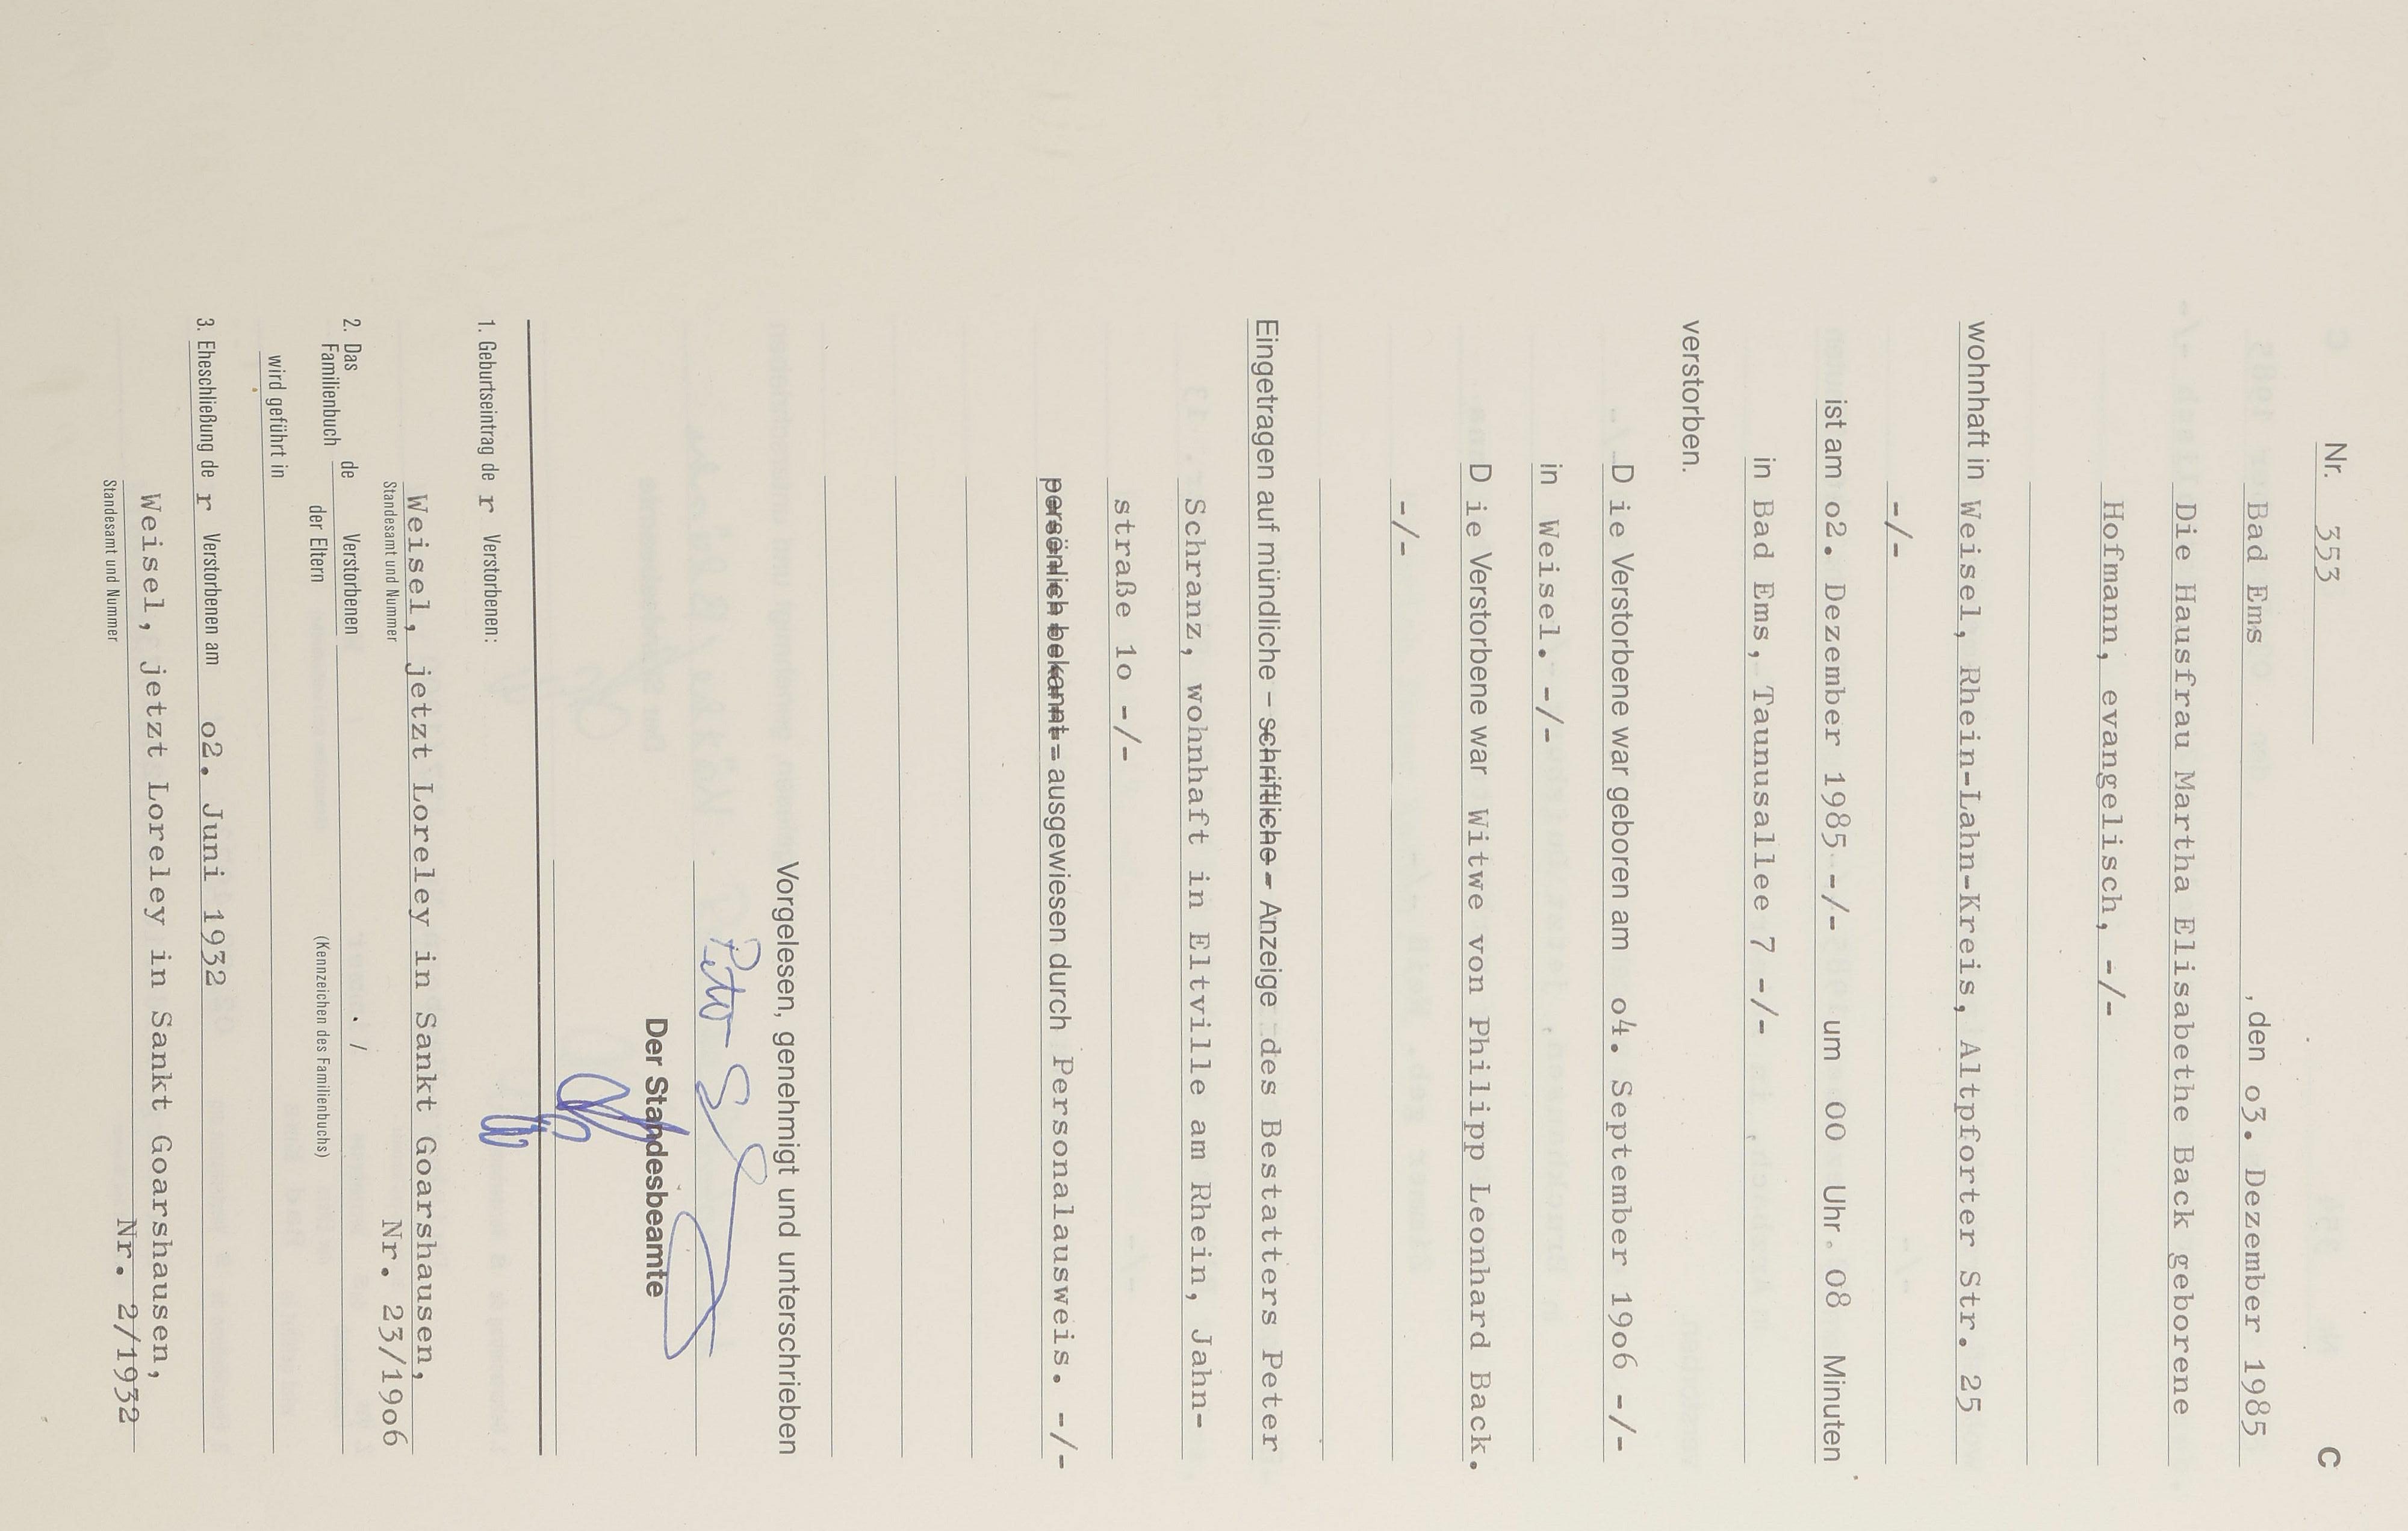 C
Nr. 353
Bad Ems, den o3. Dezember 1985
Die Hausfrau Martha Elisabethe Back geborene
Hofmann, evangelisch, -/-
wohnhaft in Weisel, Rhein-Lahn-Kreis, Altpforter Str. 25
-/-
ist am o2. Dezember 1985 -/- um oo Uhr o8 Minuten
in Bad Ems, Taunusallee 7 -/-
verstorben.
D ie Verstorbene war geboren am o4. September 19o6 -/-
in Weisel. -/-
D ie Verstorbene war Witwe von Philipp Leonhard Back.
-/-
Eingetragen auf mündliche – schriftliche – Anzeige des Bestatters Peter
Schranz, wohnhaft in Eltville am Rhein, Jahn-
straße 1o -/-
persönlich bekannt – ausgewiesen durch Personalausweis. -/-
Vorgelesen, genehmigt und unterschrieben
Peter
Der Standesbeamte
1. Geburtseintrag de r Verstorbenen:
Weisel, jetzt Loreley in Sankt Goarshausen,
Standesamt und Nummer Nr. 23/19o6
2. Das Familienbuch de Verstorbenen
der Eltern ./
(Kennzeichen des Familienbuchs)
wird geführt in
3. Eheschließung de r Verstorbenen am o2. Juni 1932
Weisel, jetzt Loreley in Sankt Goarshausen,
Standesamt und Nummer Nr. 2/1932